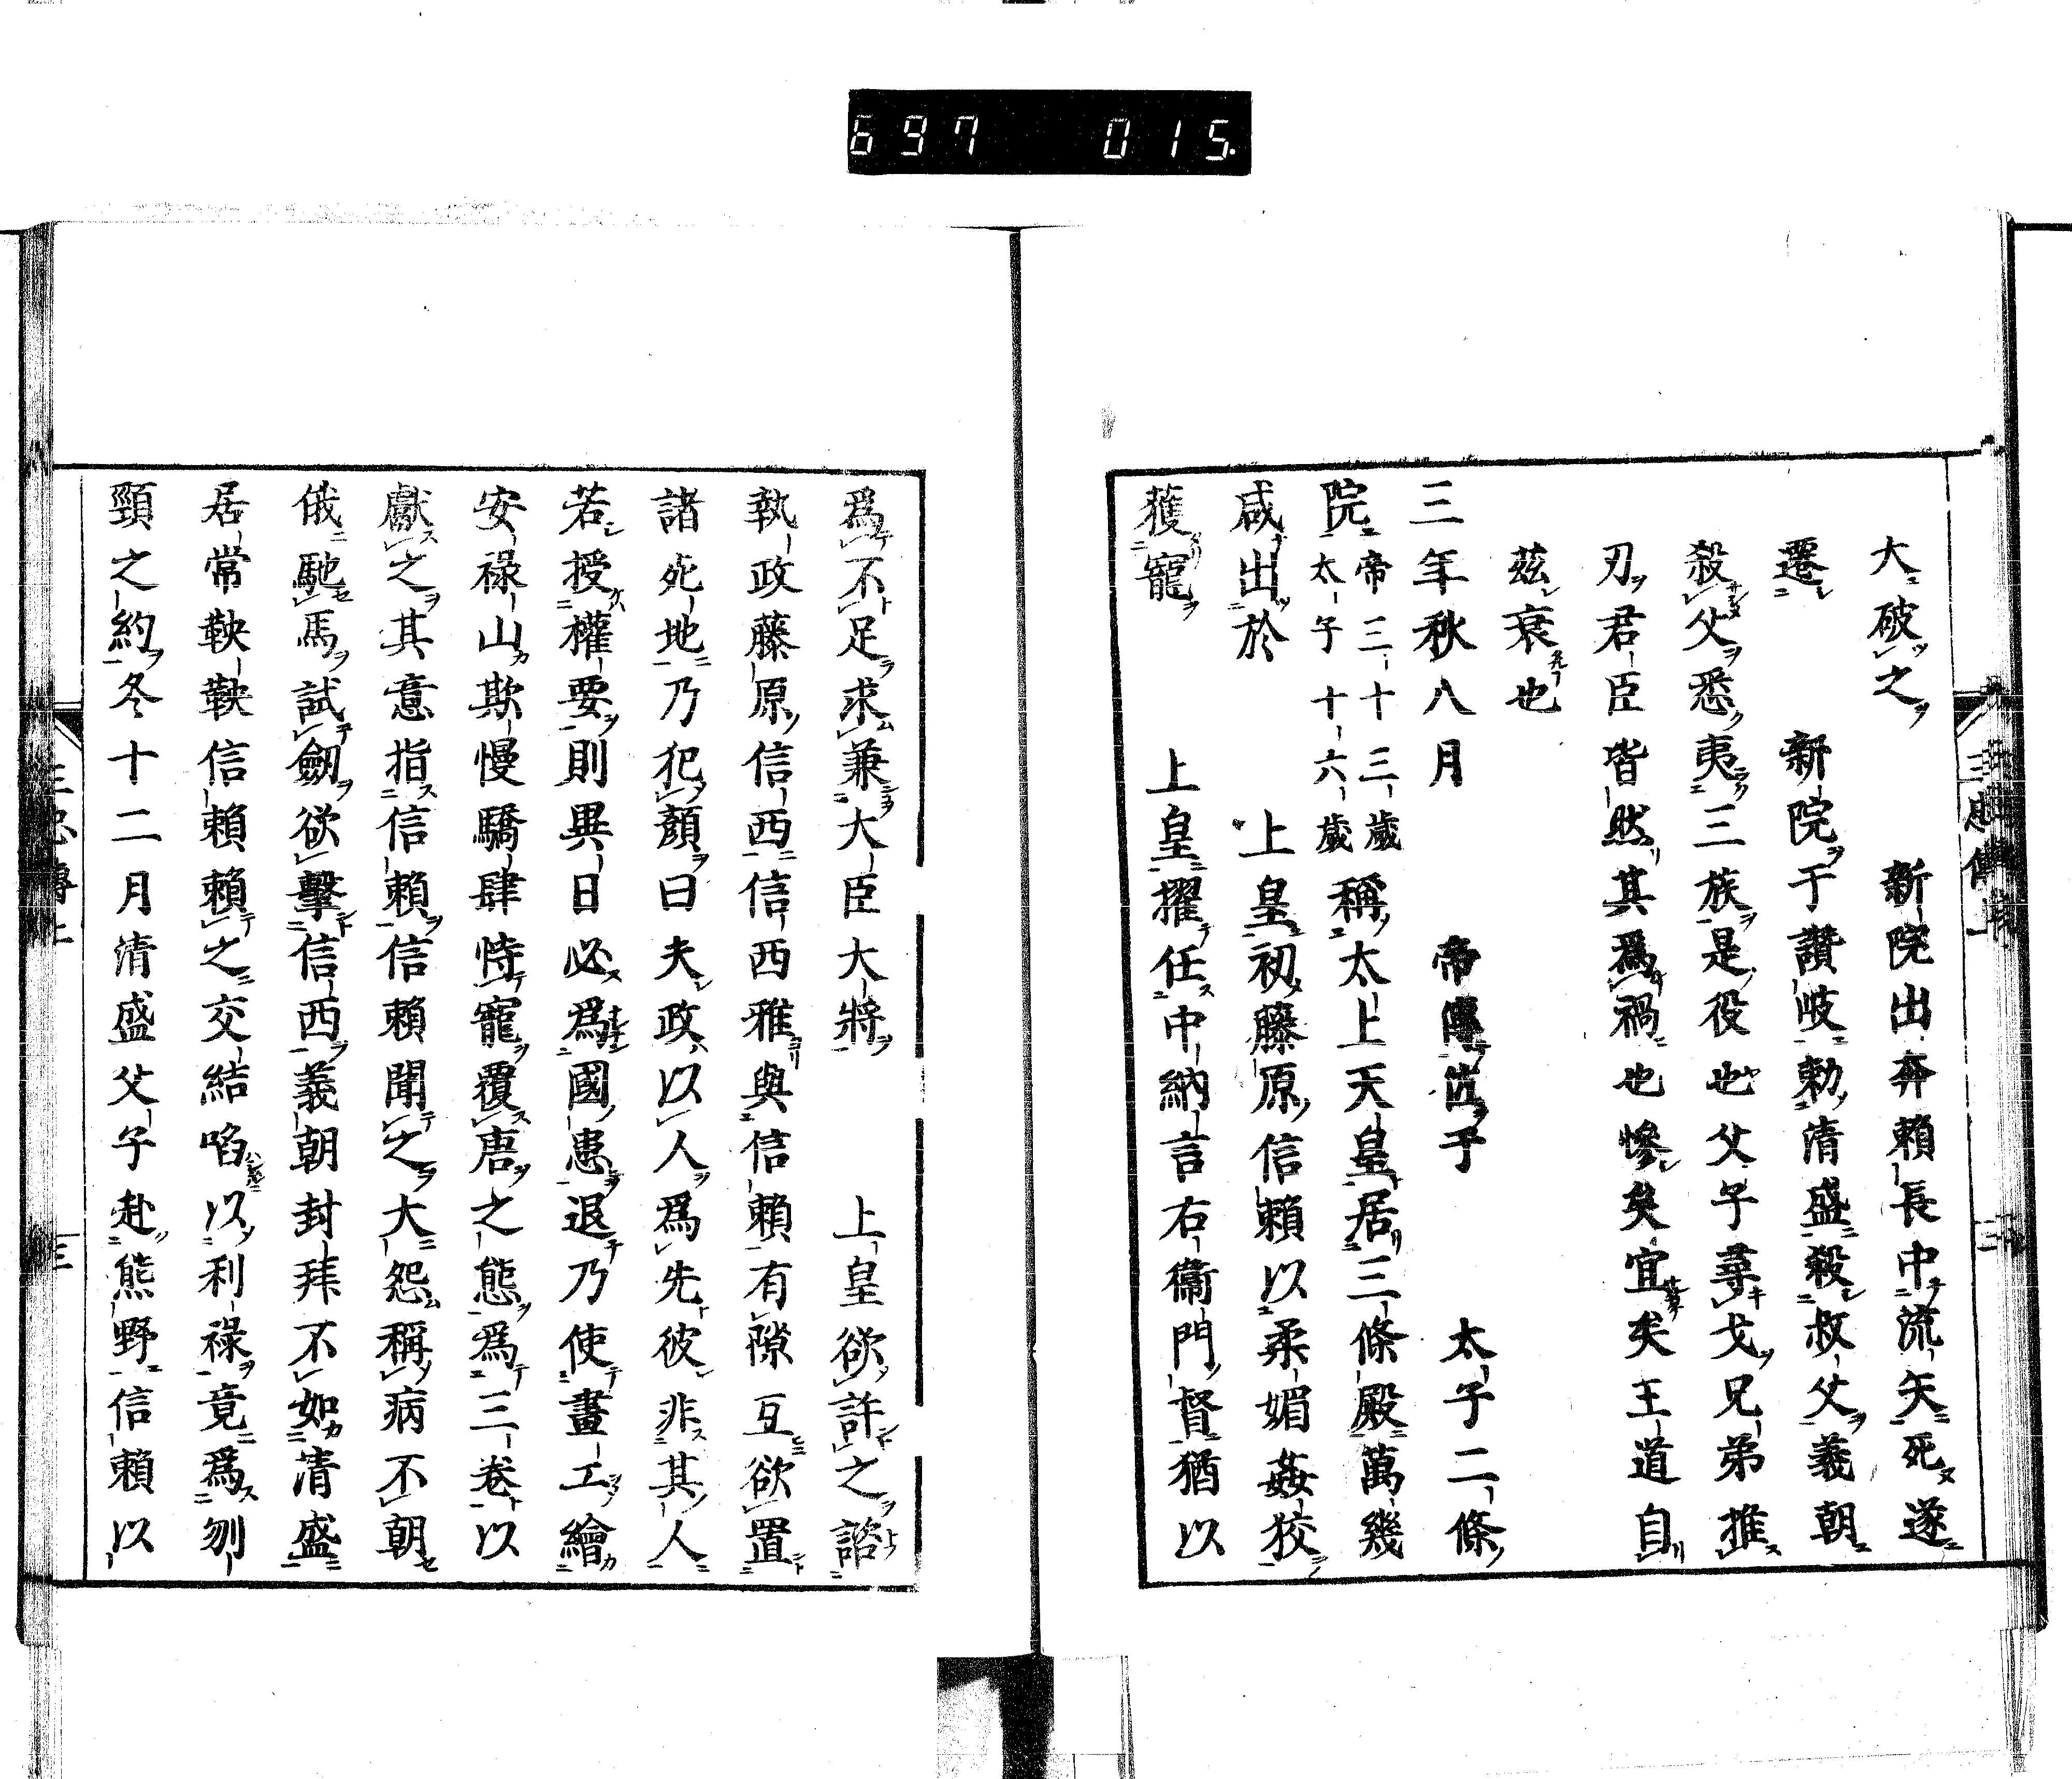 697 015.
大破之 新院出奔賴長中流矢死遂
遷 新院于讚岐勅清盛殺叔父義朝
殺父悉夷三族是役也父子尋戈兄弟推
刃君臣皆然其為禍也慘矣宜矣王道自
茲衰也
三年秋八月 帝傳位于 太子二條
院帝三十三歲太子十六歲稱太上天皇居三條殿萬幾
咸出於 上皇初藤原信賴以柔媚姦狡
獲寵 上皇擢任中納言右衞門督猶以
爲不足求兼大臣大將 上皇欲許之諮
執政藤原信西信西雅與信賴有隙互欲置
諸死地乃犯顏曰夫政以人爲先彼非其人
若授權要則異日必爲國患退乃使畫工繪
安祿山欺慢驕肆恃寵覆唐之態爲三卷以
獻之其意指信賴信賴聞之大怨稱病不朝
俄馳馬試劒欲擊信西義朝封拜不如清盛
居常鞅鞅信賴賴之交結啗以利祿竟爲刎
頸之約冬十二月清盛父子赴熊野信賴以